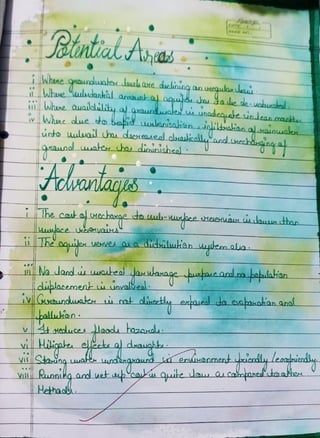 Potential Areas
i Where groundwater levels are declining on regular basis
ii Where substantial amount of aquifer has to be de-saturated.
iii Where availability of groundwater is inadequate in lean months
iv Where due to rapid urbanisation, infiltration of rainwater
into subsoil has decreased drastically and recharging of
ground water has diminished.
Advantages
i The cost of recharge to sub-surface reservoir is lower than
surface reservoirs.
ii The aquifer serves as a distribution system also.
iii No land is wasted for storage purpose and no population
displacement is involved.
iv Groundwater is not directly exposed to evaporation and
pollution.
v It reduces floods hazards.
vi Mitigates effects of draughts.
vii Storing water underground is environment friendly / ecofriendly
viii Running and set up cost is quite low as compared to other
Methods.